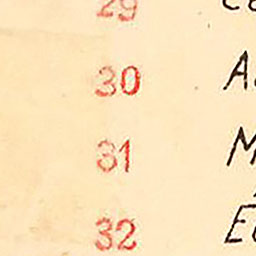 29
30 A
31 M
32 E